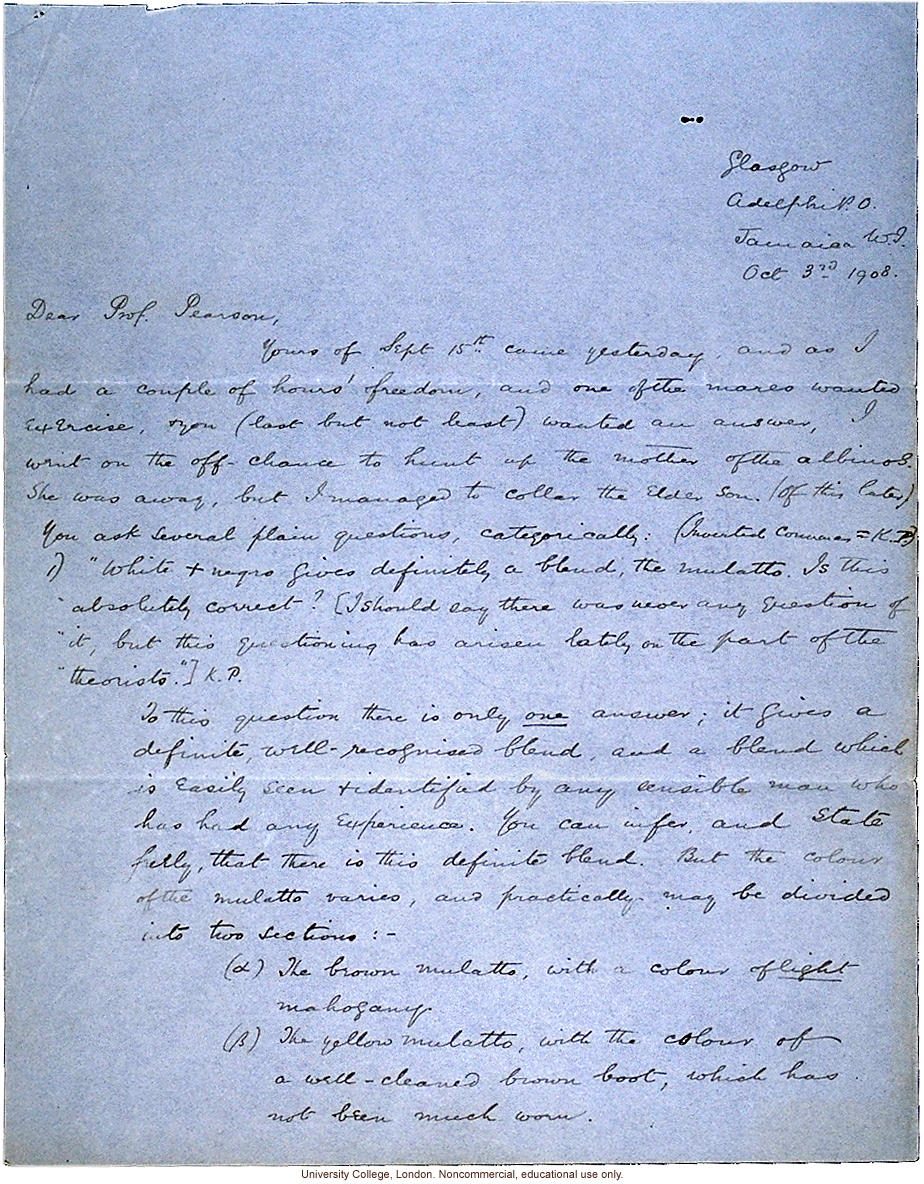 Glasgow
Adelphi P.O.
Jamaica W.I.
Oct 3rd 1908.
Dear Prof. Pearson,
Yours of Sept 15th came yesterday, and as I
had a couple of hours' freedom, and one of the mares wanted
exercise, + you (last but not least) wanted an answer, I
went on the off-chance to hunt up the mother of the albinos.
She was away, but I managed to collar the Elder Son. (Of this later)
You ask several plain questions, categorically: (Inverted Commas = K.P.)
1) "White + negro gives definitely a blend, the mulatto. Is this
"absolutely correct? [I should say there was never any question of
"it, but this questioning has arisen lately on the part of the
"theorists."] K.P.
To this question there is only one answer; it gives a
definite, well-recognised blend, and a blend which
is easily seen + identified by any sensible man who
has had any experience. You can infer, and state
freely, that there is this definite blend. But the colour
of the mulatto varies, and practically may be divided
into two sections :-
(α) The brown mulatto, with a colour of light
mahogany.
(β) The yellow mulatto, with the colour of
a well-cleaned brown boot, which has
not been much worn.
University College, London. Noncommercial, educational use only.